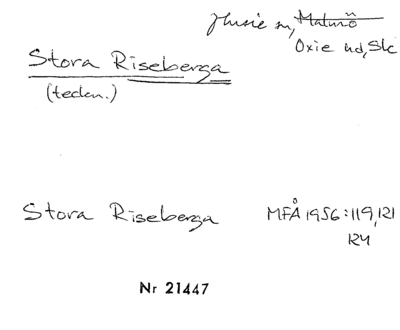 Husie sn, Malmö
Oxie hd, Sk
Stora Riseberga
(teckn.)
Stora Riseberga MFÅ 1956:119,121
124
Nr 21447